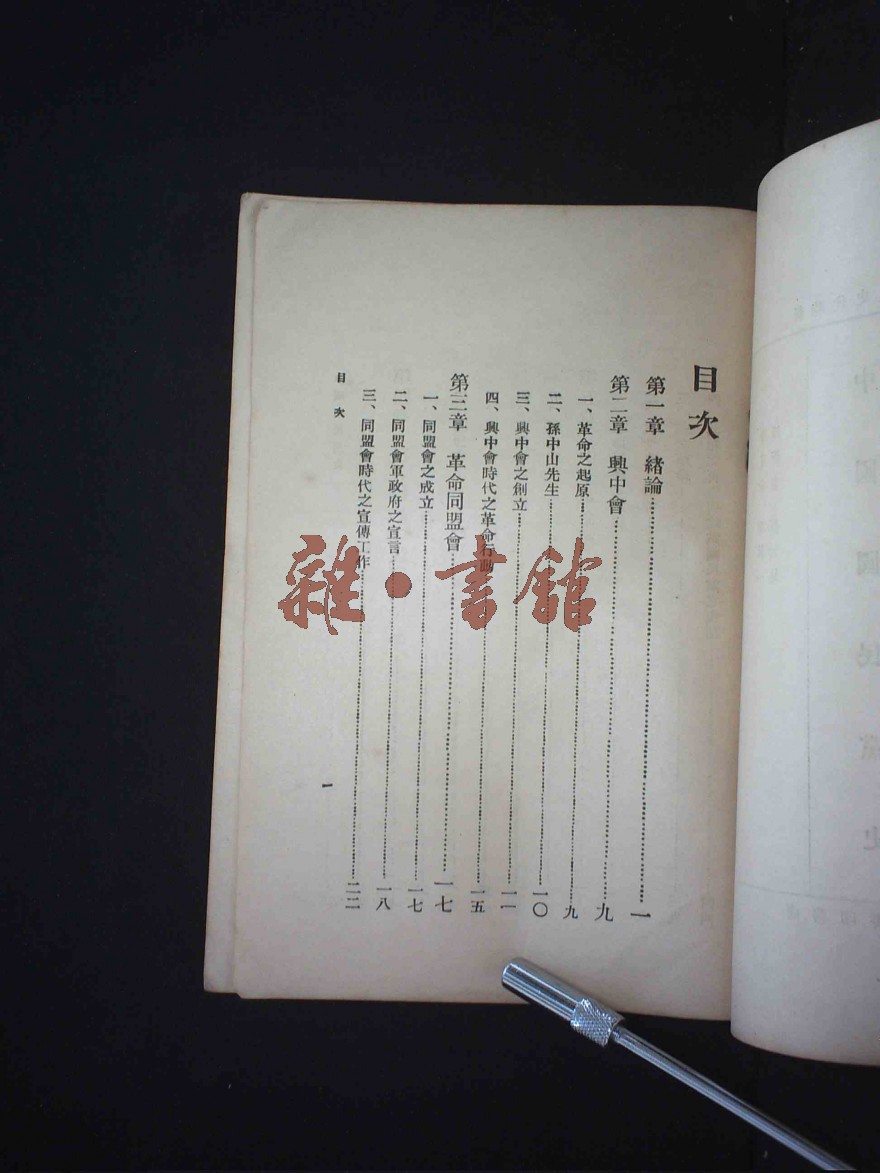 目次
第一章　緒論………一
第二章　興中會………九
一、革命之起原………九
二、孫中山先生………一〇
三、興中會之創立………一一
四、興中會時代之革命行動………一五
第三章　革命同盟會………一七
一、同盟會之成立………一七
二、同盟會軍政府之宣言………一八
三、同盟會時代之宣傳工作………二二
目次
一
雜·書館